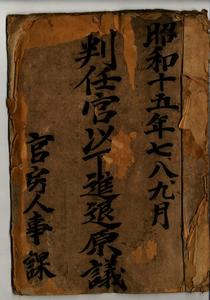 昭和十五年七八九月
判任官以下進退原議
官房人事課